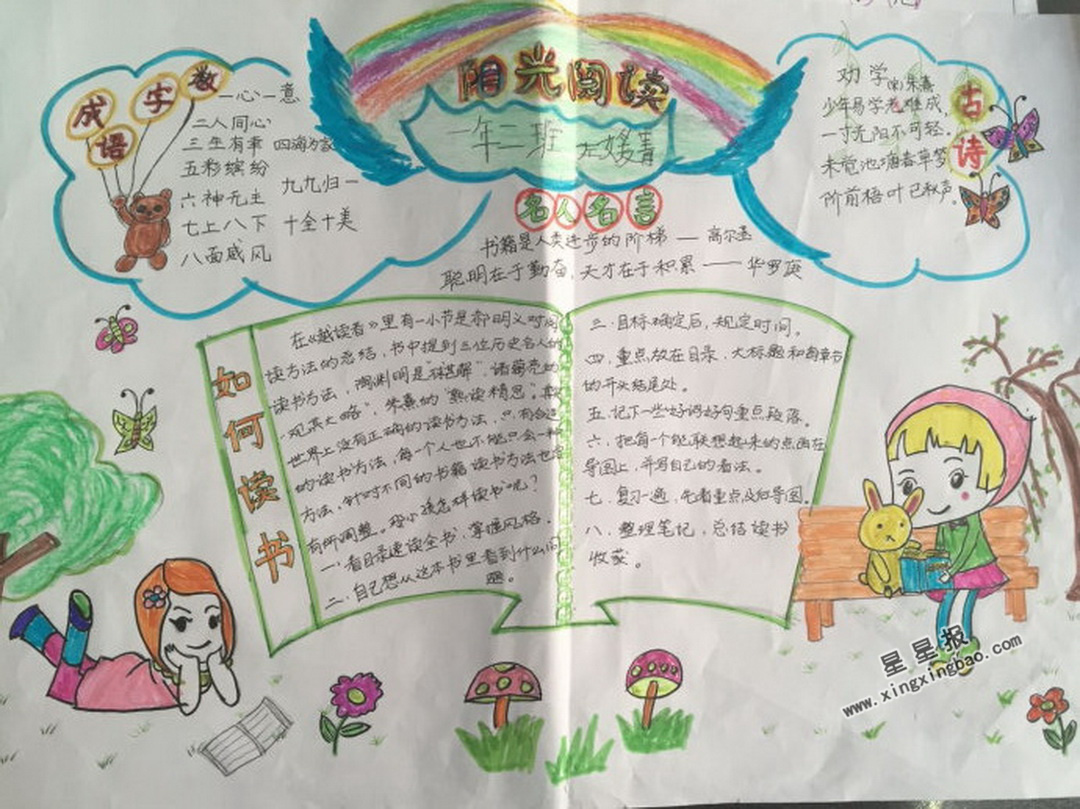 阳光阅读
一年二班
数字成语
一心一意
二人同心
三生有幸 四海为家
五彩缤纷
六神无主 九九归一
七上八下 十全十美
八面威风
古诗
劝学 宋 朱熹
少年易学老难成
一寸光阴不可轻。
未觉池塘春草梦
阶前梧叶已秋声。
名人名言
书籍是人类进步的阶梯 — 高尔基
聪明在于勤奋，天才在于积累 —— 华罗庚
如何读书
在《越读者》里有一小节是郝明义对阅
读方法的总结，书中提到三位历史名人的
读书方法，陶渊明是"不求甚解"，诸葛亮的
"观其大略"，朱熹的"熟读精思"。其实
世界上没有正确的读书方法，只有合适
的读书方法，每一个人也不能只会一种
方法，针对不同的书籍读书方法也应
有所调整。 小孩怎样读书呢？
一、看目录速读全书，掌握风格。
二、自己想从这本书里看到什么问
题。
三、目标确定后，规定时间。
四、重点放在目录，大标题和每章节
的开头结尾处。
五、记下一些好词好句重点段落。
六、把每一个能联想起来的点画在
导图上，并写自己的看法。
七、复习一遍，先看重点及归导图。
八、整理笔记，总结读书
收获。
星星报
www.xingxingbao.com